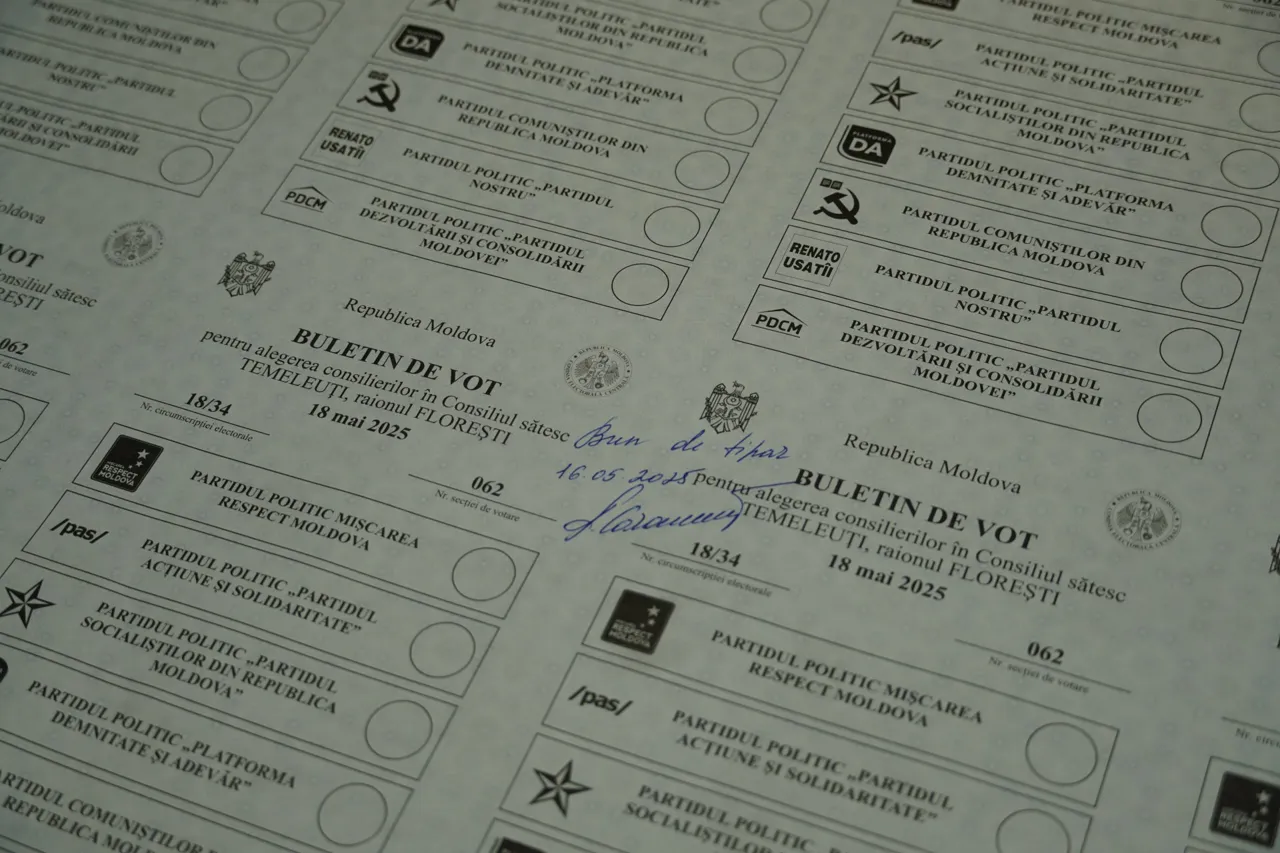 PARTIDUL COMUNIȘTILOR DIN
REPUBLICA MOLDOVA
PARTIDUL POLITIC „PARTIDUL
NOSTRU”
PARTIDUL POLITIC „PARTIDUL
SOCIALIȘTILOR DIN REPUBLICA
MOLDOVA”
PLATFORMA
DA
PARTIDUL POLITIC „PLATFORMA
DEMNITATE ȘI ADEVĂR”
PARTIDUL COMUNIȘTILOR DIN
REPUBLICA MOLDOVA
RENATO
USATÎI
PARTIDUL POLITIC „PARTIDUL
NOSTRU”
PDCM
PARTIDUL POLITIC „PARTIDUL
DEZVOLTĂRII ȘI CONSOLIDĂRII
MOLDOVEI”
PARTIDUL POLITIC MIȘCAREA
RESPECT MOLDOVA
/pas/
PARTIDUL POLITIC „PARTIDUL
ACȚIUNE ȘI SOLIDARITATE”
PARTIDUL POLITIC „PARTIDUL
SOCIALIȘTILOR DIN REPUBLICA
MOLDOVA”
PLATFORMA
DA
PARTIDUL POLITIC „PLATFORMA
DEMNITATE ȘI ADEVĂR”
PARTIDUL COMUNIȘTILOR DIN
REPUBLICA MOLDOVA
RENATO
USATÎI
PARTIDUL POLITIC „PARTIDUL
NOSTRU”
PDCM
PARTIDUL POLITIC „PARTIDUL
DEZVOLTĂRII ȘI CONSOLIDĂRII
MOLDOVEI”
Republica Moldova
BULETIN DE VOT
pentru alegerea consilierilor în Consiliul sătesc
TEMELEUȚI, raionul FLOREȘTI
18 mai 2025
18/34
Nr. circumscripției electorale
062
Nr. secției de votare
RESPECT
MOLDOVA
PARTIDUL POLITIC MIȘCAREA
RESPECT MOLDOVA
/pas/
PARTIDUL POLITIC „PARTIDUL
ACȚIUNE ȘI SOLIDARITATE”
PARTIDUL POLITIC „PARTIDUL
SOCIALIȘTILOR DIN REPUBLICA
MOLDOVA”
PARTIDUL POLITIC „PLATFORMA
DEMNITATE ȘI ADEVĂR”
PARTIDUL COMUNIȘTILOR DIN
REPUBLICA MOLDOVA
Bun de tipar
16.05.2025
Republica Moldova
BULETIN DE VOT
pentru alegerea consilierilor în Consiliul sătesc
TEMELEUȚI, raionul FLOREȘTI
18 mai 2025
18/34
Nr. circumscripției electorale
062
Nr. secției de votare
RESPECT
MOLDOVA
PARTIDUL POLITIC MIȘCAREA
RESPECT MOLDOVA
/pas/
PARTIDUL POLITIC „PARTIDUL
ACȚIUNE ȘI SOLIDARITATE”
PARTIDUL POLITIC „PARTIDUL
SOCIALIȘTILOR DIN REPUBLICA
RESPECT
MOLDOVA